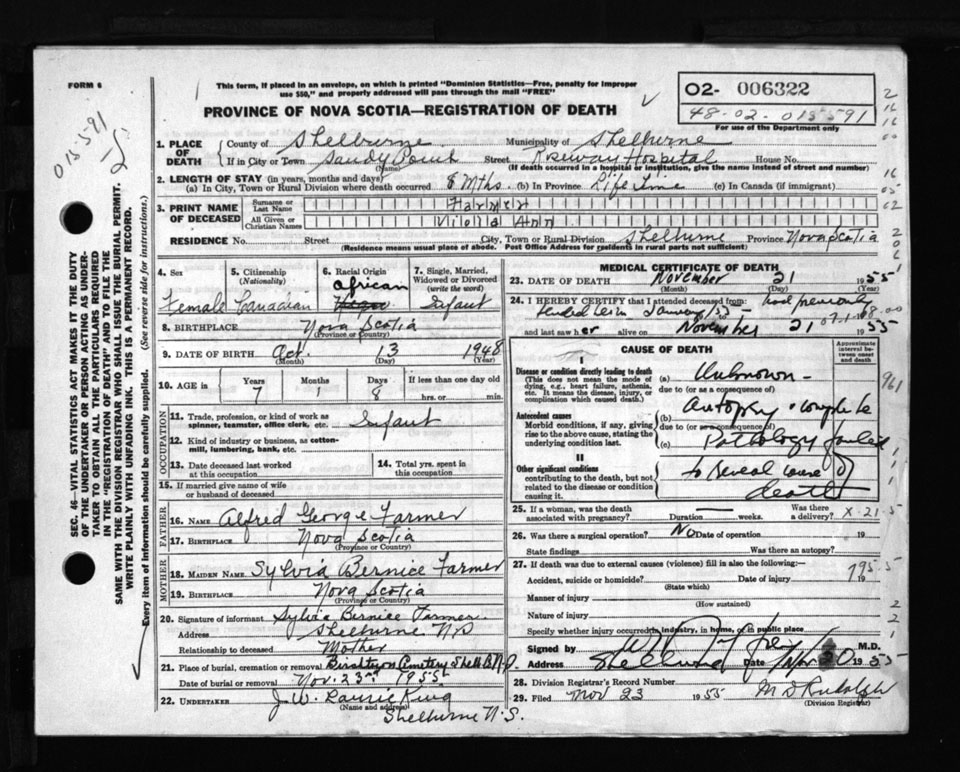 FORM 6
This form, if placed in an envelope, on which is printed "Dominion Statistics—Free, penalty for improper
use $50," and properly addressed will pass through the mail "FREE"
PROVINCE OF NOVA SCOTIA—REGISTRATION OF DEATH
02- 006322
48-02-015591
For use of the Department only
015591
SEC. 46 VITAL STATISTICS ACT MAKES IT THE DUTY
OF THE UNDERTAKER OR PERSON ACTING AS UNDER-
TAKER TO OBTAIN ALL THE PARTICULARS REQUIRED
IN THE "REGISTRATION OF DEATH" AND TO FILE THE
SAME WITH THE DIVISION REGISTRAR WHO SHALL ISSUE THE BURIAL PERMIT.
WRITE PLAINLY WITH UNFADING INK. THIS IS A PERMANENT RECORD.
Every item of information should be carefully supplied. (See reverse side for instructions.)
1. PLACE OF DEATH County of Shelburne Municipality of Shelburne
If in City or Town Sandy Point Street Roseway Hospital House No.
(Name) (If death occurred in a hospital or institution, give the name instead of street and number)
2. LENGTH OF STAY (in years, months and days)
(a) In City, Town or Rural Division where death occurred 8 Mths. (b) In Province Life Time (c) In Canada (if immigrant)
3. PRINT NAME OF DECEASED Surname or Last Name Farmer
All Given or Christian Names Viola Ann
RESIDENCE No. Street City, Town or Rural Division Shelburne Province Nova Scotia
(Residence means usual place of abode. Post Office Address for residents in rural parts not sufficient)
4. Sex 5. Citizenship (Nationality) 6. Racial Origin 7. Single, Married, Widowed or Divorced (write the word)
Female Canadian African Infant
8. BIRTHPLACE Nova Scotia
(Province or Country)
9. DATE OF BIRTH Oct. 13 1948
(Month) (Day) (Year)
10. AGE in Years Months Days If less than one day old
7 1 8 hrs. or min.
OCCUPATION
11. Trade, profession, or kind of work as
spinner, teamster, office clerk, etc. Infant
12. Kind of industry or business, as cotton-
mill, lumbering, bank, etc.
13. Date deceased last worked
at this occupation
14. Total yrs. spent in
this occupation
15. If married give name of wife
or husband of deceased
FATHER
16. NAME Alfred George Farmer
17. BIRTHPLACE Nova Scotia
(Province or Country)
MOTHER
18. MAIDEN NAME Sylvia Bernice Farmer
19. BIRTHPLACE Nova Scotia
(Province or Country)
20. Signature of informant Sylvia Bernice Farmer
Address Shelburne N.S
Relationship to deceased Mother
21. Place of burial, cremation or removal Cemetery Shelb. N.S.
Date of burial or removal Nov. 23rd 1955
22. UNDERTAKER J.W. Laurie King
(Name and address)
Shelburne N.S.
MEDICAL CERTIFICATE OF DEATH
23. DATE OF DEATH November 21 1955
(Month) (Day)
24. I HEREBY CERTIFY that I attended deceased from:
January/55
and last saw her alive on November 21 1955
CAUSE OF DEATH
Approximate interval between onset and death
I
Disease or condition directly leading to death
(This does not mean the mode of
dying, e.g., heart failure, asthenia,
etc. It means the disease, injury, or
complication which caused death.)
(a) Unknown -
due to (or as a consequence of)
Antecedent causes
Morbid conditions, if any, giving
rise to the above cause, stating the
underlying condition last.
(b) autopsy & complete
due to (or as a consequence of)
(c) Pathology failed
II
Other significant conditions
contributing to the death, but not
related to the disease or condition
causing it.
to reveal cause of
death
25. If a woman, was the death
associated with pregnancy? Duration weeks. Was there a delivery? X-21-5
26. Was there a surgical operation? No Date of operation 19
State findings Was there an autopsy?
27. If death was due to external causes (violence) fill in also the following:—
Accident, suicide or homicide? Date of injury 19
(State which)
Manner of injury
(How sustained)
Nature of injury
Specify whether injury occurred in industry, in home, or in public place
Signed by M.D.
Address Shelburne Date Nov 30 1955
28. Division Registrar's Record Number
29. Filed Nov 23 1955 M D Rudolph
(Division Registrar)